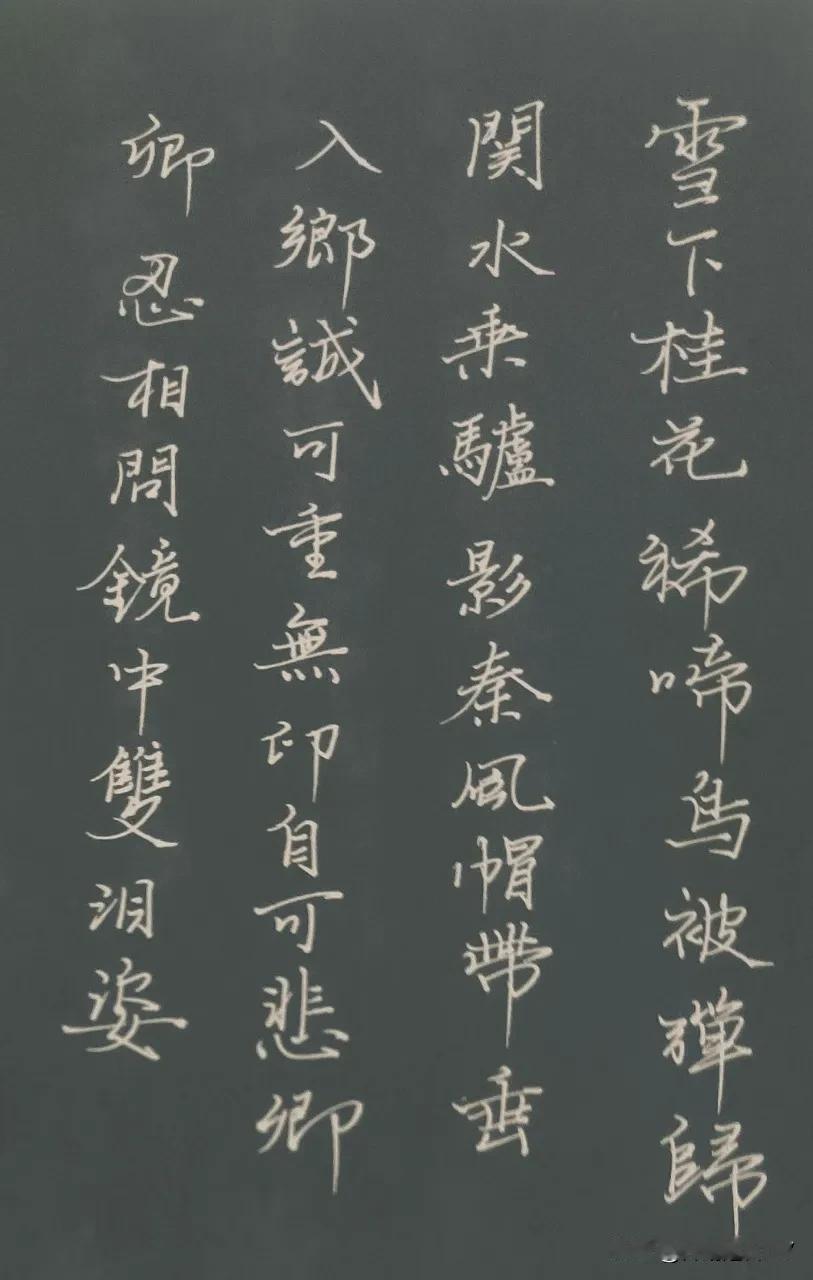 雪下桂花稀啼鳥被彈歸
関水乘驢影秦風帽帶垂
入鄉誠可重無印自可悲卿
卿忍相問鏡中雙泪姿